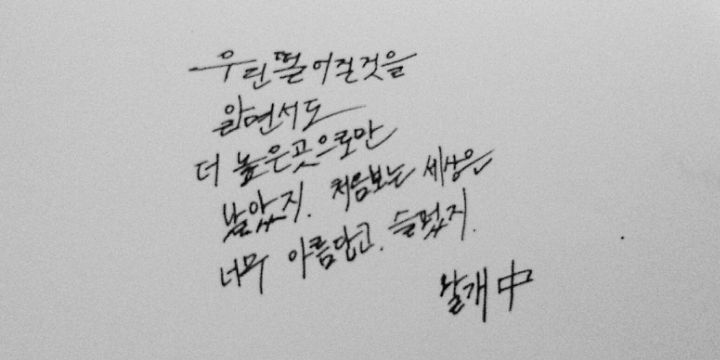 우린 떨어질것을
알면서도
더 높은곳으로만
날았지. 처음보는 세상은
너무 아름답고. 슬펐지.
날개 中